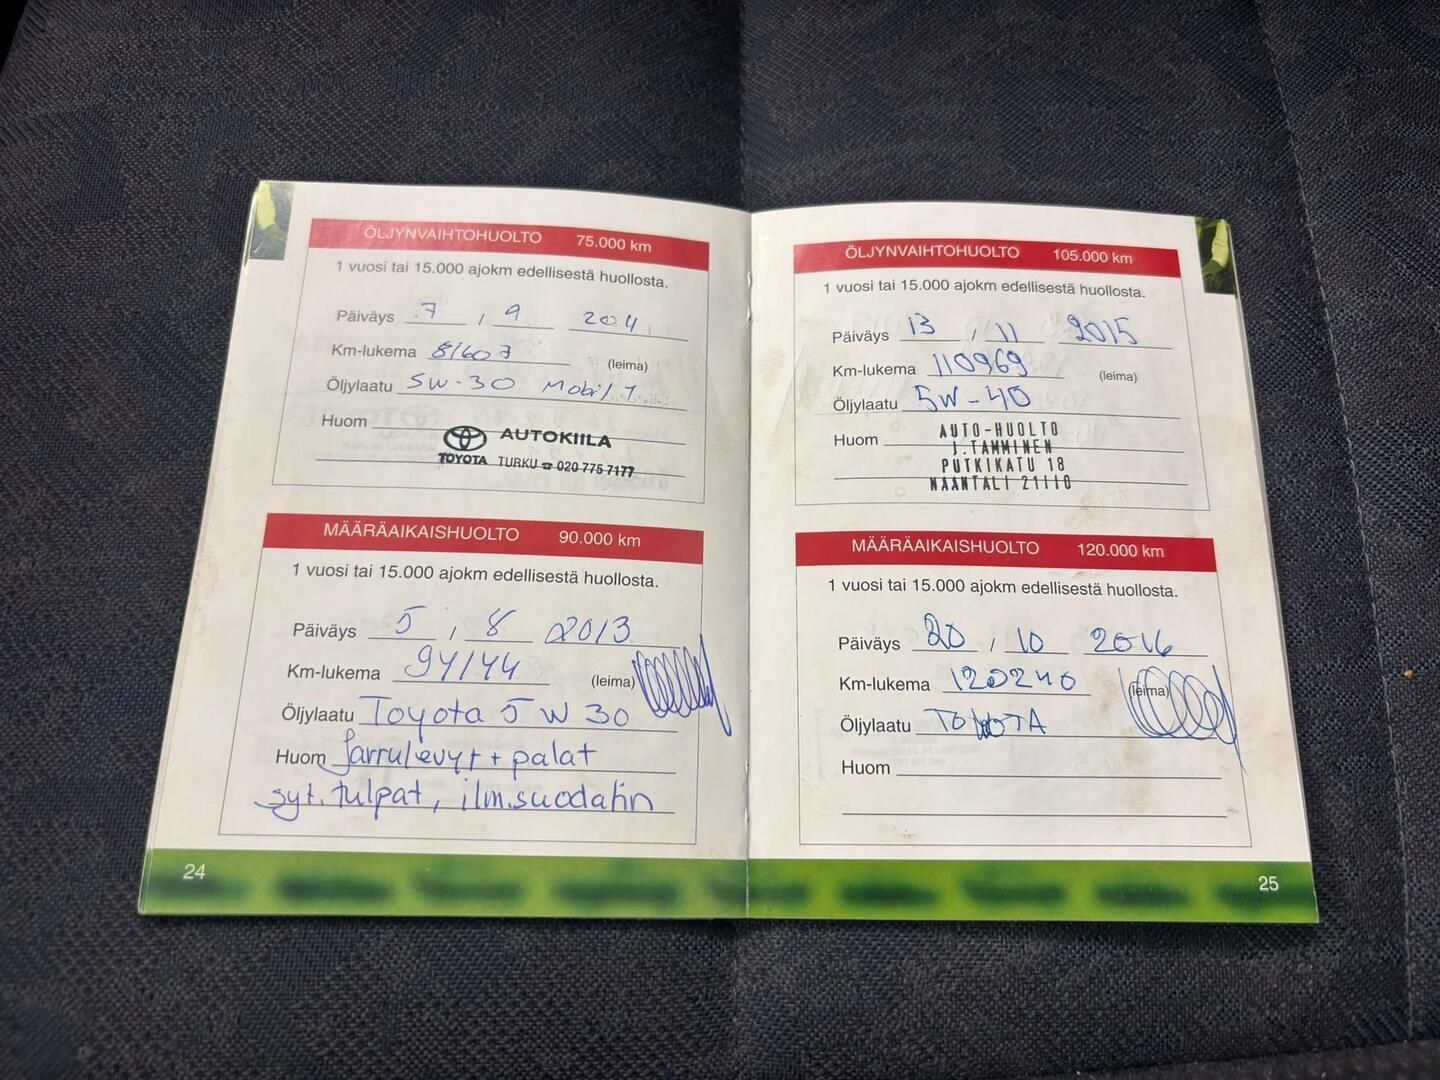 ÖLJYNVAIHTOHUOLTO 75.000 km
1 vuosi tai 15.000 ajokm edellisestä huollosta.
Päiväys 7 , 9 2011
Km-lukema 81607 (leima)
Öljylaatu 5W-30 Mobil 1
Huom
AUTOKIILA
TOYOTA TURKU ☎ 020 775 7177
MÄÄRÄAIKAISHUOLTO 90.000 km
1 vuosi tai 15.000 ajokm edellisestä huollosta.
Päiväys 5 / 8 2013
Km-lukema 94144 (leima)
Öljylaatu Toyota 5W30
Huom Jarrulevyt + palat
syt.tulpat, ilm.suodatin
24
ÖLJYNVAIHTOHUOLTO 105.000 km
1 vuosi tai 15.000 ajokm edellisestä huollosta.
Päiväys 13 , 11 2015
Km-lukema 110969 (leima)
Öljylaatu 5W-40
Huom
AUTO-HUOLTO
J.TAMMINEN
PUTKIKATU 18
NAANTALI 21110
MÄÄRÄAIKAISHUOLTO 120.000 km
1 vuosi tai 15.000 ajokm edellisestä huollosta.
Päiväys 20 / 10 2016
Km-lukema 120240 (leima)
Öljylaatu TOYOTA
Huom
25